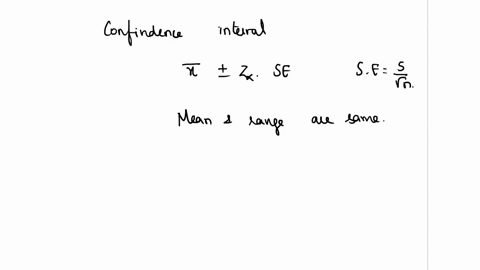 Confindence interal
x̄ ± Zα. SE S.E = s/√n.
Mean & range are same.